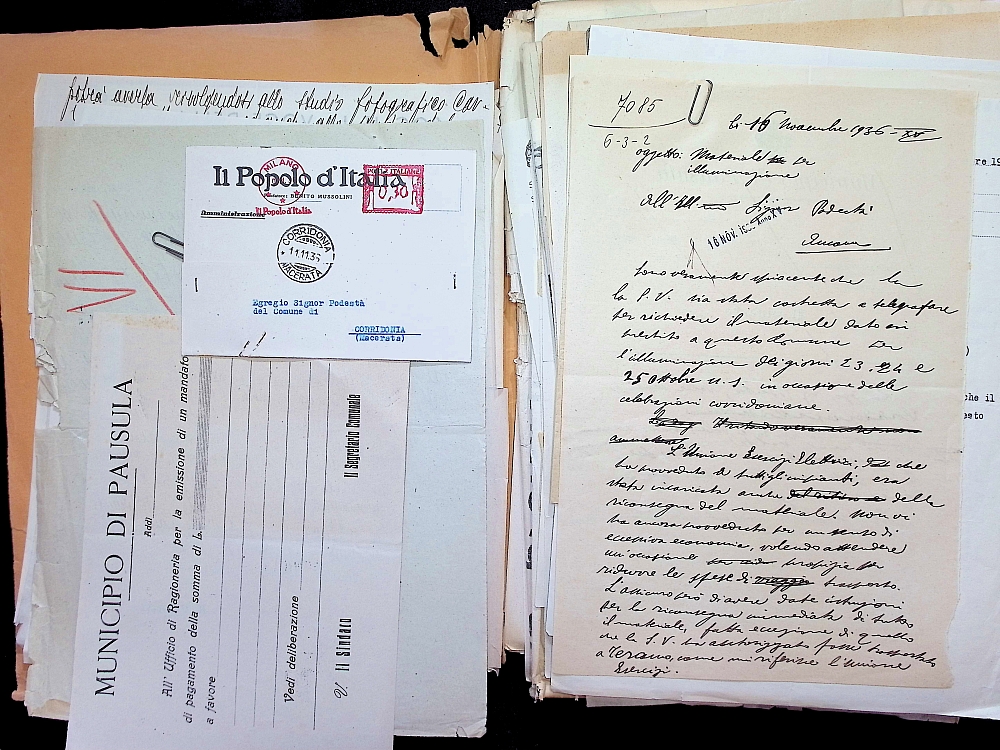 potrà averla, rivolgendosi allo Studio fotografico Can-
MILANO
Il Popolo d'Italia
BENITO MUSSOLINI
Amministrazione
Il Popolo d'Italia
POSTE ITALIANE
0,30
CORRIDONIA
11.11.36
MACERATA
Egregio Signor Podestà
del Comune di
CORRIDONIA
(Macerata)
VI
MUNICIPIO DI PAUSULA
Addì
All' Ufficio di Ragioneria per la emissione di un mandato
di pagamento della somma di L.
a favore
Vedi deliberazione
V Il Sindaco
Il Segretario Comunale
7085
6-3-2
Li 16 Novembre 1936 - XV
oggetto: Materiale per
illuminazione
All' Signor Podestà
16 NOV. Anno XV
Ancona
Sono veramente spiacente che la
la S. V. sia stata costretta a telegrafare
per richiedere il materiale dato in
prestito a questo Comune per
l'illuminazione dei giorni 23, 24 e
25 Ottobre u. s. in occasione delle
celebrazioni corridoniane.
L'Unione Esercizi Elettrici, che
ha provveduto a tutti gli impianti, era
stata incaricata anche della
riconsegna del materiale. Non vi
ha ancora provveduto per un senso di
eccessiva economia, volendo attendere
un'occasione propizia per
ridurre le spese di trasporto.
L'assicuro però di avere date istruzioni
per la riconsegna immediata di tutto
il materiale, fatta eccezione di quello
che la S. V. ha autorizzato fosse trasportato
a Teramo, come mi riferisce l'Unione
Esercizi.
re 19
che il
esto